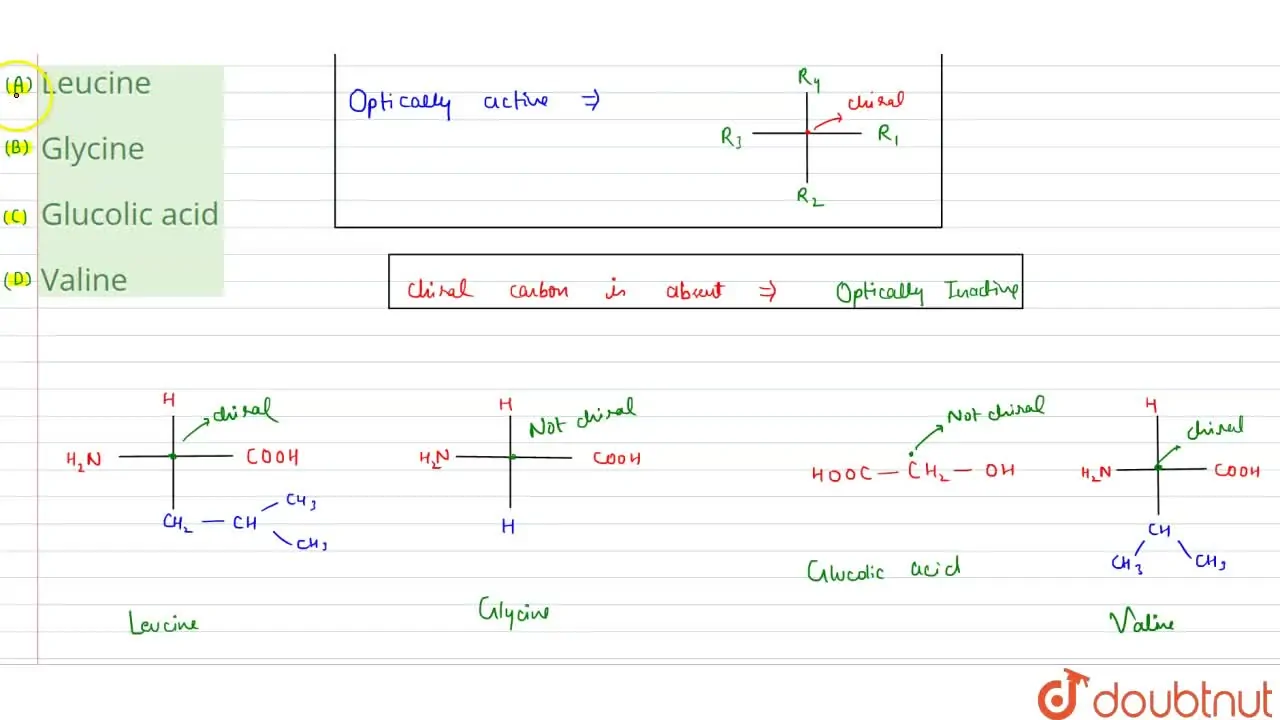 (A) Leucine
(B) Glycine
(C) Glucolic acid
(D) Valine
Optically active ⇒
R4
chiral
R3
R1
R2
Chiral carbon is absent ⇒ Optically Inactive
H
chiral
H2N
COOH
CH2 — CH
CH3
CH3
Leucine
H
Not chiral
H2N
COOH
H
Glycine
Not chiral
HOOC — CH2 — OH
Glucolic acid
H
chiral
H2N
COOH
CH
CH3
CH3
Valine
doubtnut